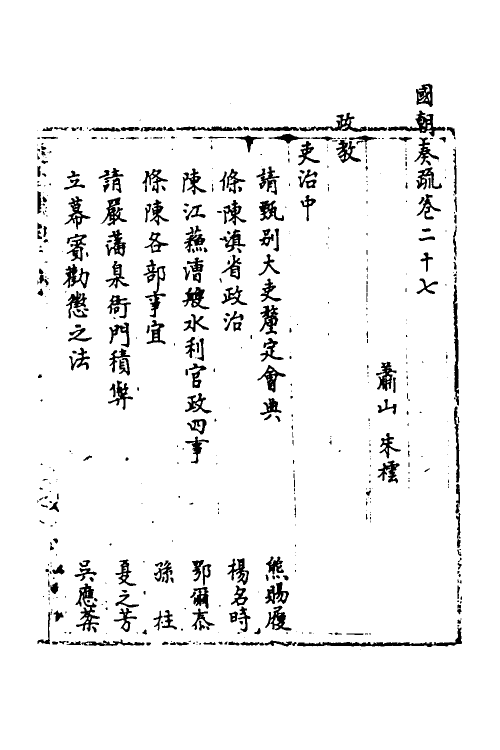 國朝奏疏卷二十七
蕭山 朱橒
政教
吏治中
請甄别大吏釐定會典 熊賜履
條陳滇省政治 楊名時
陳江蘓漕艘水利官政四事 鄂爾泰
條陳各部事宜 孫柱
請嚴藩臬衙門積獘 夏之芳
立幕賓勸懲之法 吳應棻